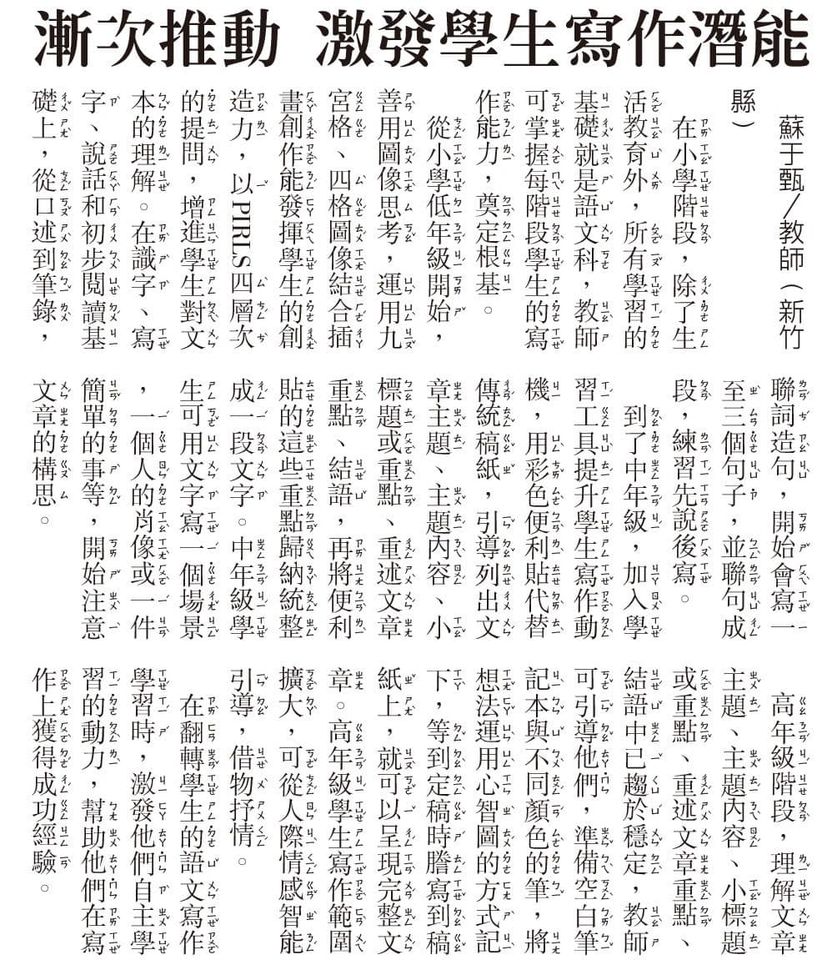 漸次推動　激發學生寫作潛能
蘇于甄／教師（新竹
縣）
在小學階段，除了生
活教育外，所有學習的
基礎就是語文科，教師
可掌握每階段學生的寫
作能力，奠定根基。
從小學低年級開始，
善用圖像思考，運用九
宮格、四格圖像結合插
畫創作能發揮學生的創
造力，以PIRLS四層次
的提問，增進學生對文
本的理解。在識字、寫
字、說話和初步閱讀基
礎上，從口述到筆錄，
聯詞造句，開始會寫一
至三個句子，並聯句成
段，練習先說後寫。
到了中年級，加入學
習工具提升學生寫作動
機，用彩色便利貼代替
傳統稿紙，引導列出文
章主題、主題內容、小
標題或重點、重述文章
重點、結語，再將便利
貼的這些重點歸納統整
成一段文字。中年級學
生可用文字寫一個場景
，一個人的肖像或一件
簡單的事等，開始注意
文章的構思。
高年級階段，理解文章
主題、主題內容、小標題
或重點、重述文章重點、
結語中已趨於穩定，教師
可引導他們，準備空白筆
記本與不同顏色的筆，將
想法運用心智圖的方式記
下，等到定稿時謄寫到稿
紙上，就可以呈現完整文
章。高年級學生寫作範圍
擴大，可從人際情感智能
引導，借物抒情。
在翻轉學生的語文寫作
學習時，激發他們自主學
習的動力，幫助他們在寫
作上獲得成功經驗。